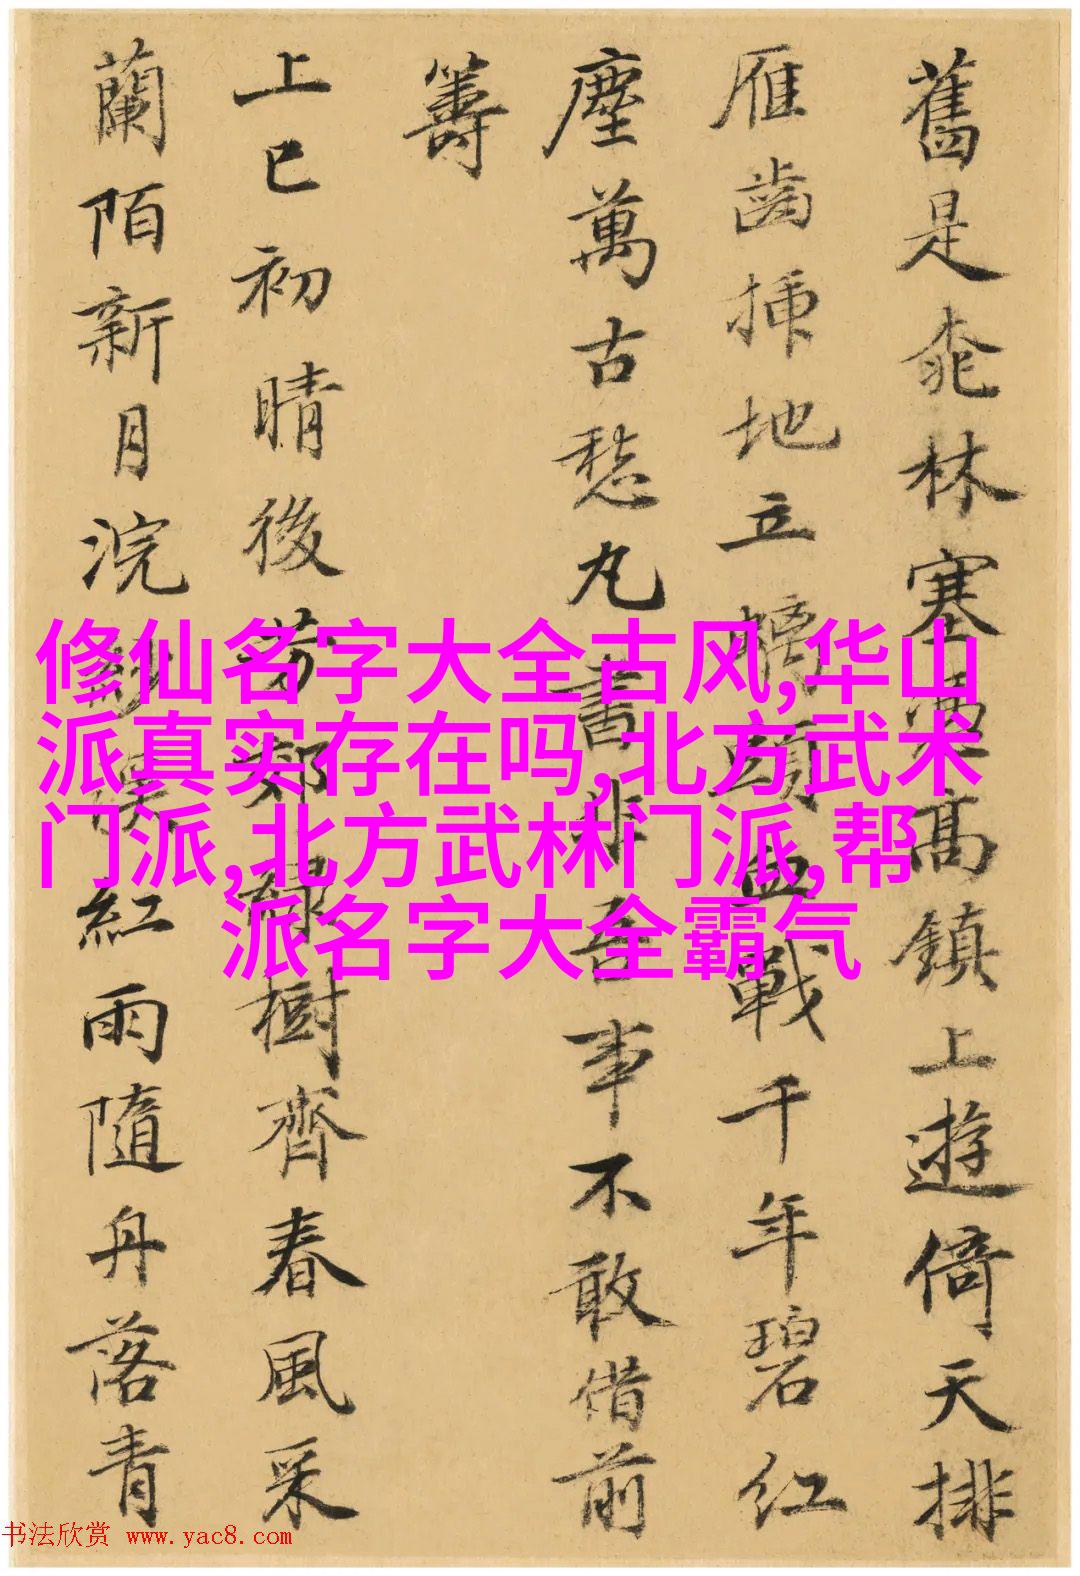 舊是桃林塞要高鎮上遊倚天排
雁齒插地立螭頭血戰千年碧紅
塵萬古愁丸書非吾事不敢借前
籌
上巳初晴後芳郊綠樹齊春風采
蘭陌新月浣紗溪紅雨隨舟落青
修仙名字大全古风,华山
派真实存在吗,北方武术
门派,北方武林门派,帮
派名字大全霸气
书法欣赏 www.yac8.com